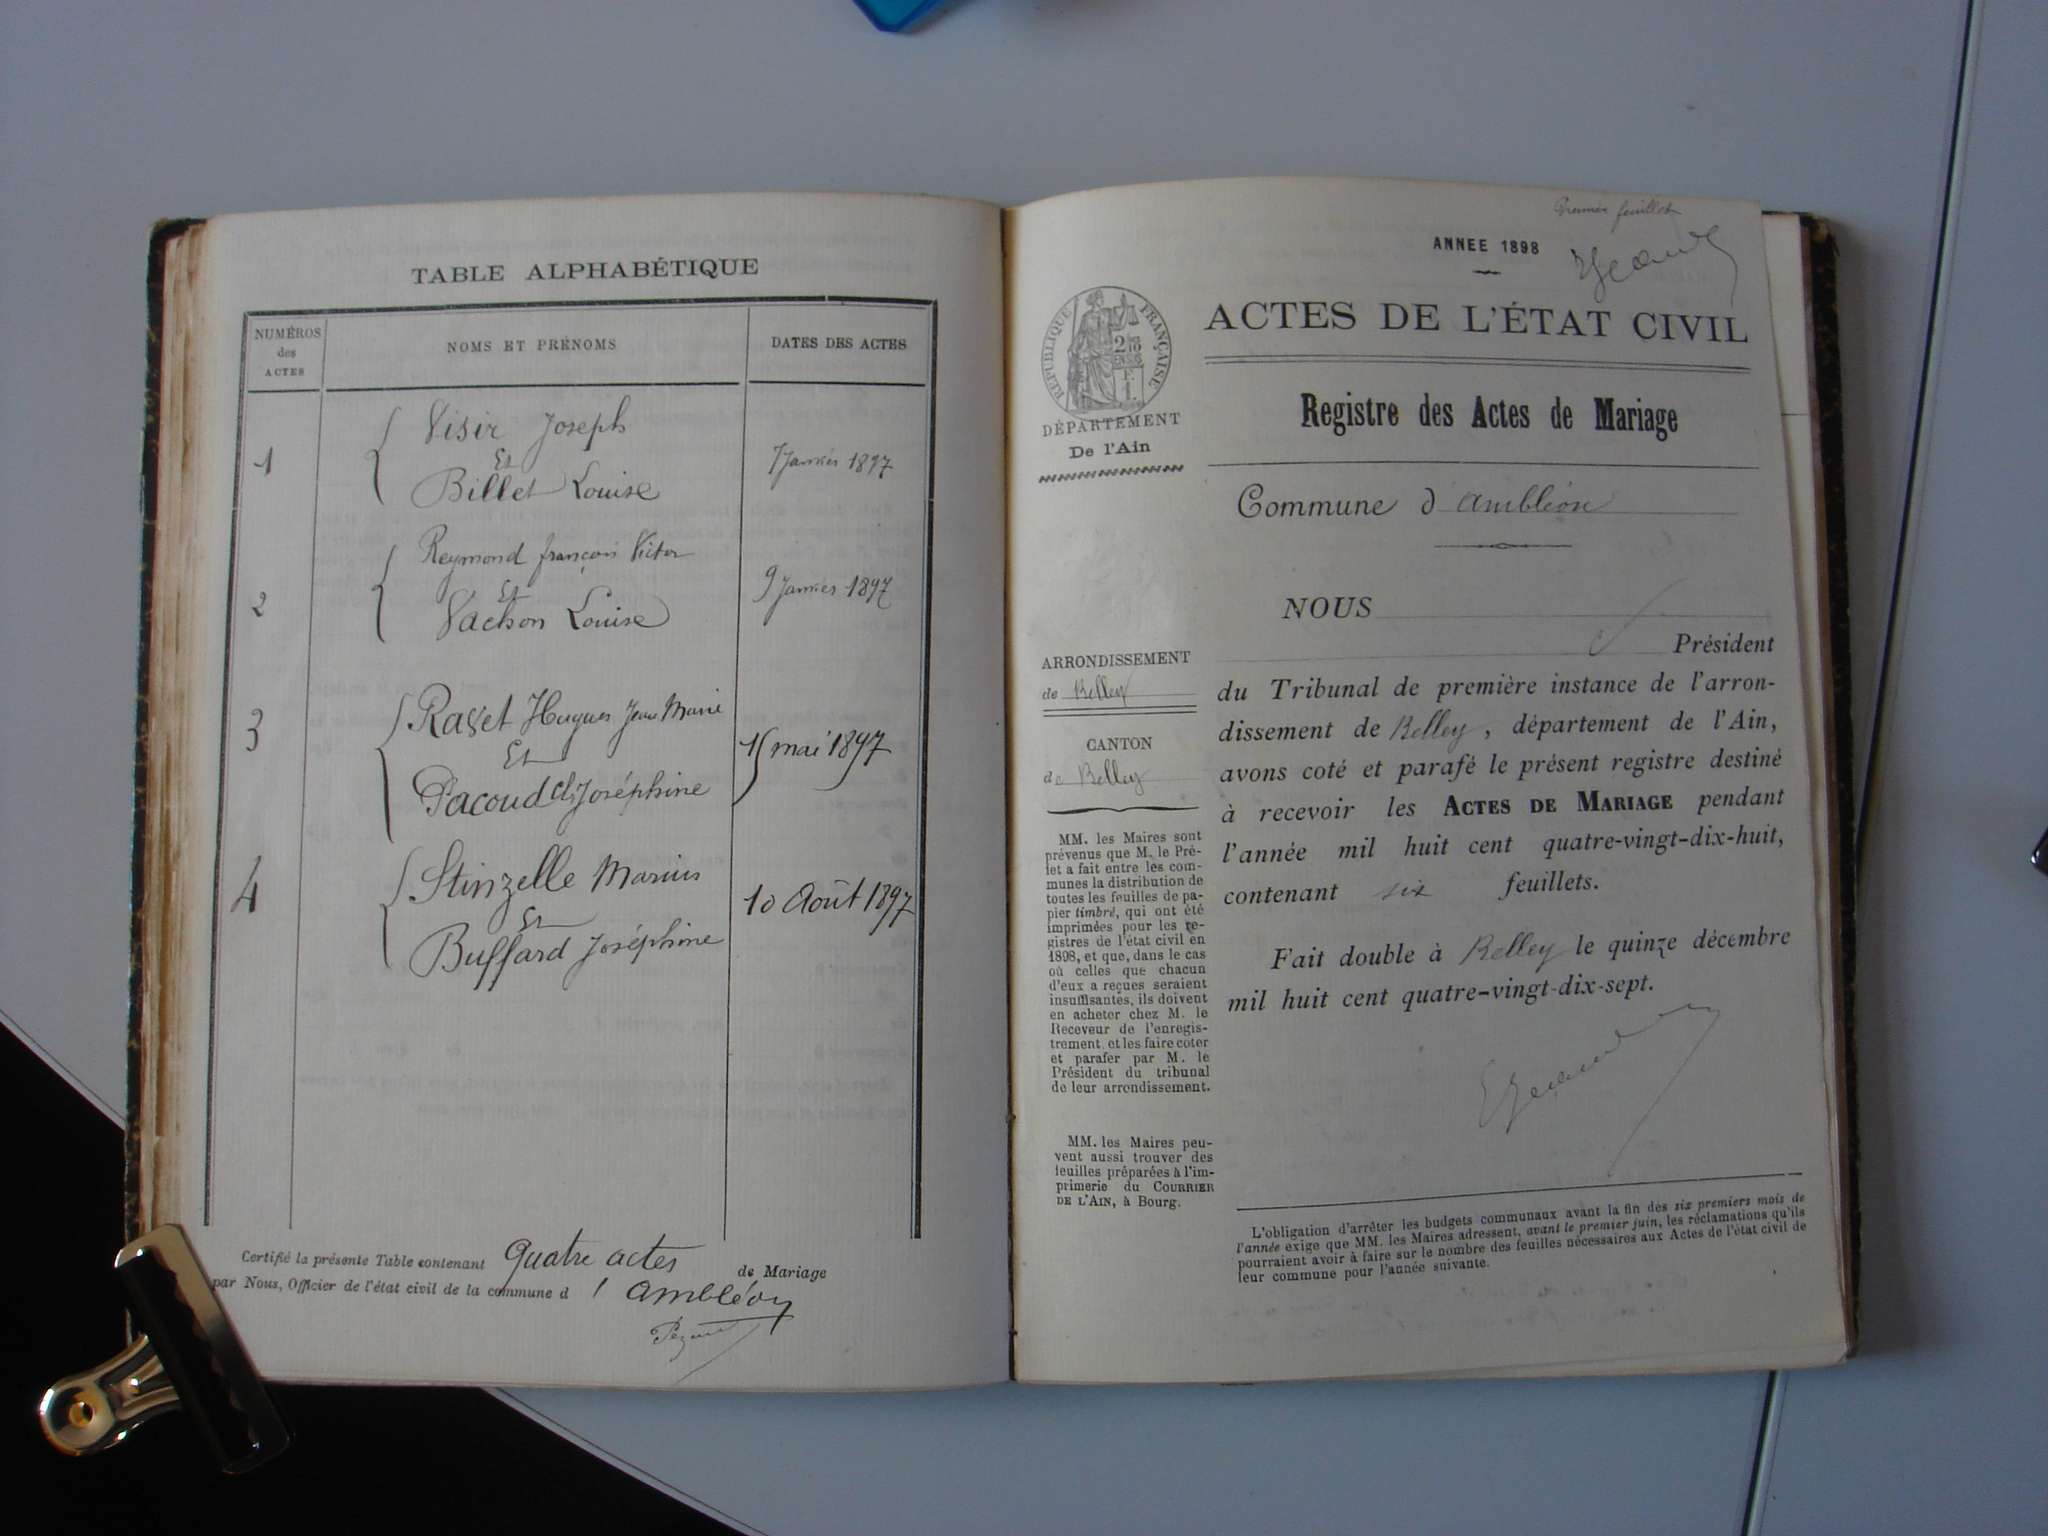 TABLE ALPHABÉTIQUE
NUMÉROS
des
ACTES
NOMS ET PRÉNOMS
DATES DES ACTES
1
Visir Joseph
Et
Billet Louise
7 Janvier 1897
2
Reymond françois Victor
Et
Vachon Louise
9 Janvier 1897
3
Ravet Hugues Jean Marie
Et
Pacoud Joséphine
15 mai 1897
4
Stinzelle Marius
Et
Buffard Joséphine
10 Août 1897
Certifié la présente Table contenant Quatre actes de Mariage
par Nous, Officier de l'état civil de la commune d'Ambléon
Premier feuillet
ANNEE 1898
ACTES DE L'ÉTAT CIVIL
RÉPUBLIQUE FRANÇAISE
DÉPARTEMENT
De l'Ain
Registre des Actes de Mariage
Commune d'Ambléon
NOUS
Président
du Tribunal de première instance de l'arron-
dissement de Belley, département de l'Ain,
avons coté et parafé le présent registre destiné
à recevoir les ACTES DE MARIAGE pendant
l'année mil huit cent quatre-vingt-dix-huit,
contenant six feuillets.
Fait double à Belley le quinze décembre
mil huit cent quatre-vingt-dix-sept.
ARRONDISSEMENT
de Belley
CANTON
de Belley
MM. les Maires sont
prévenus que M. le Pré-
fet a fait entre les com-
munes la distribution de
toutes les feuilles de pa-
pier timbré, qui ont été
imprimées pour les re-
gistres de l'état civil en
1898, et que, dans le cas
où celles que chacun
d'eux a reçues seraient
insuffisantes, ils doivent
en acheter chez M. le
Receveur de l'enregis-
trement, et les faire coter
et parafer par M. le
Président du tribunal
de leur arrondissement.
MM. les Maires peu-
vent aussi trouver des
feuilles préparées à l'im-
primerie du COURRIER
DE L'AIN, à Bourg.
L'obligation d'arrêter les budgets communaux avant la fin des six premiers mois de
l'année exige que MM. les Maires adressent, avant le premier juin, les réclamations qu'ils
pourraient avoir à faire sur le nombre des feuilles nécessaires aux Actes de l'état civil de
leur commune pour l'année suivante.